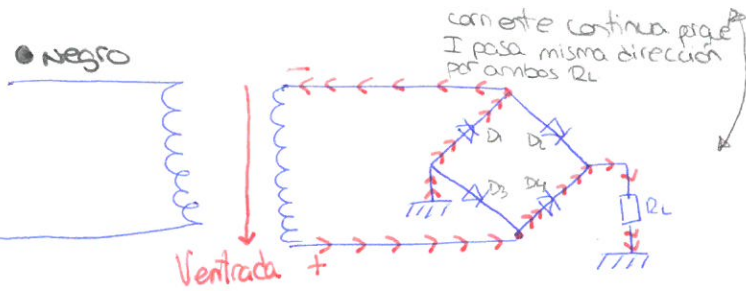 corriente continua porque
I pasa misma dirección
por ambos RL
Negro
D1
D2
D3
D4
RL
Ventrada
+